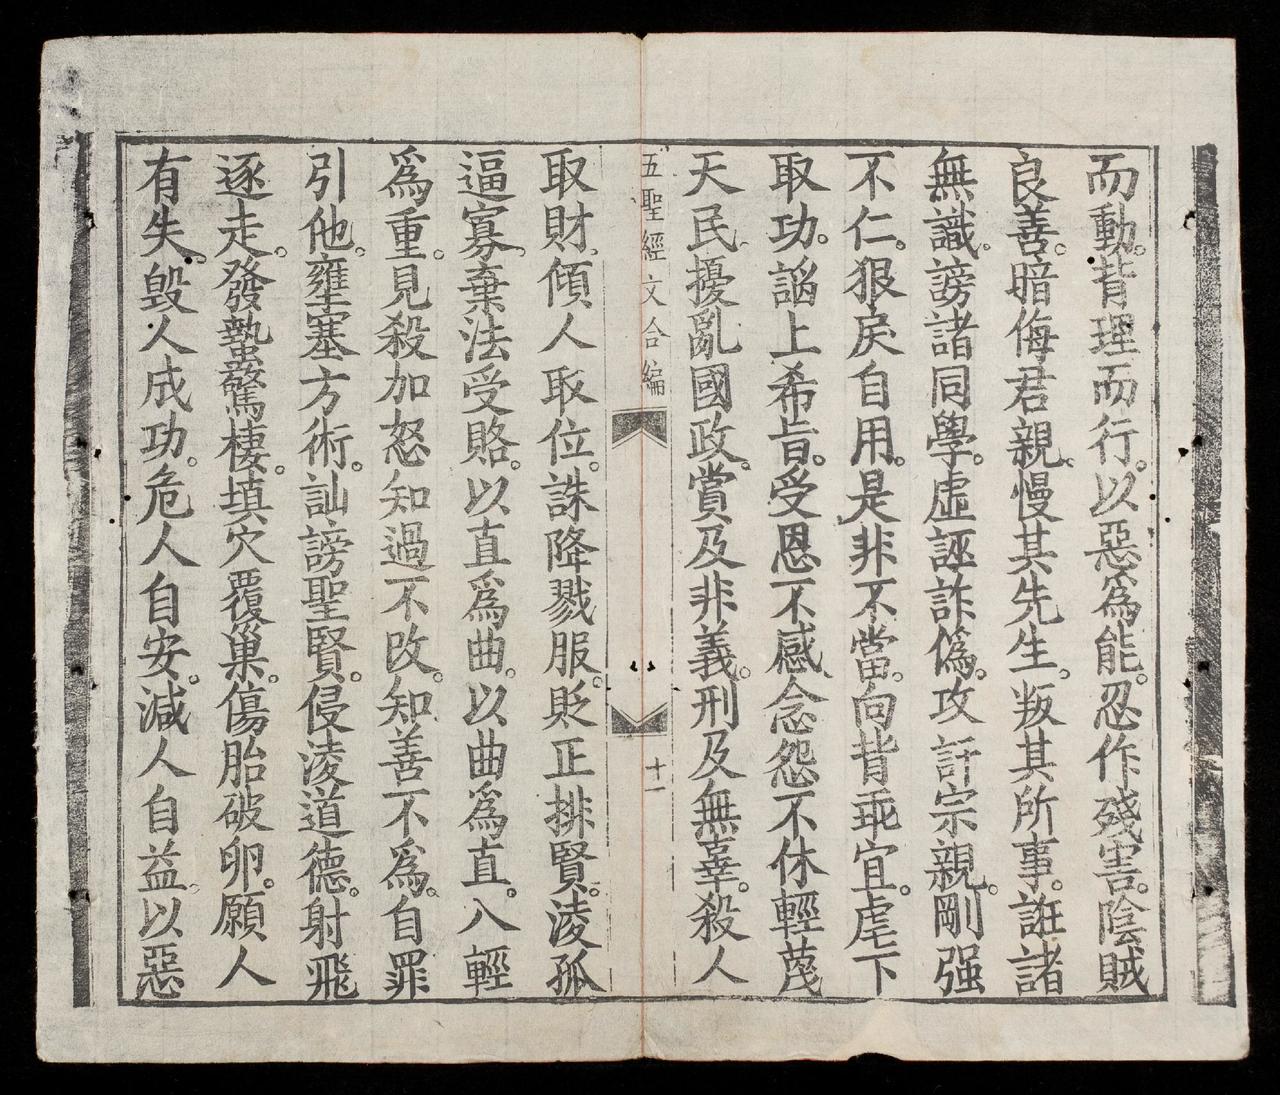 而動。背理而行。以惡爲能。忍作殘害。陰賊
良善。暗侮君親。慢其先生。叛其所事。誑諸
無識。謗諸同學。虛誣詐偽。攻訐宗親。剛强
不仁。狠戾自用。是非不當。向背乖宜。虐下
取功。謟上希旨。受恩不感。念怨不休。輕蔑
天民。擾亂國政。賞及非義。刑及無辜。殺人
五聖經文合編
十一
取財。傾人取位。誅降戮服。貶正排賢。淩孤
逼寡。棄法受賂。以直爲曲。以曲爲直。入輕
爲重。見殺加怒。知過不改。知善不爲。自罪
引他。壅塞方術。訕謗聖賢。侵淩道德。射飛
逐走。發蟄驚棲。填穴覆巢。傷胎破卵。願人
有失。毀人成功。危人自安。減人自益。以惡